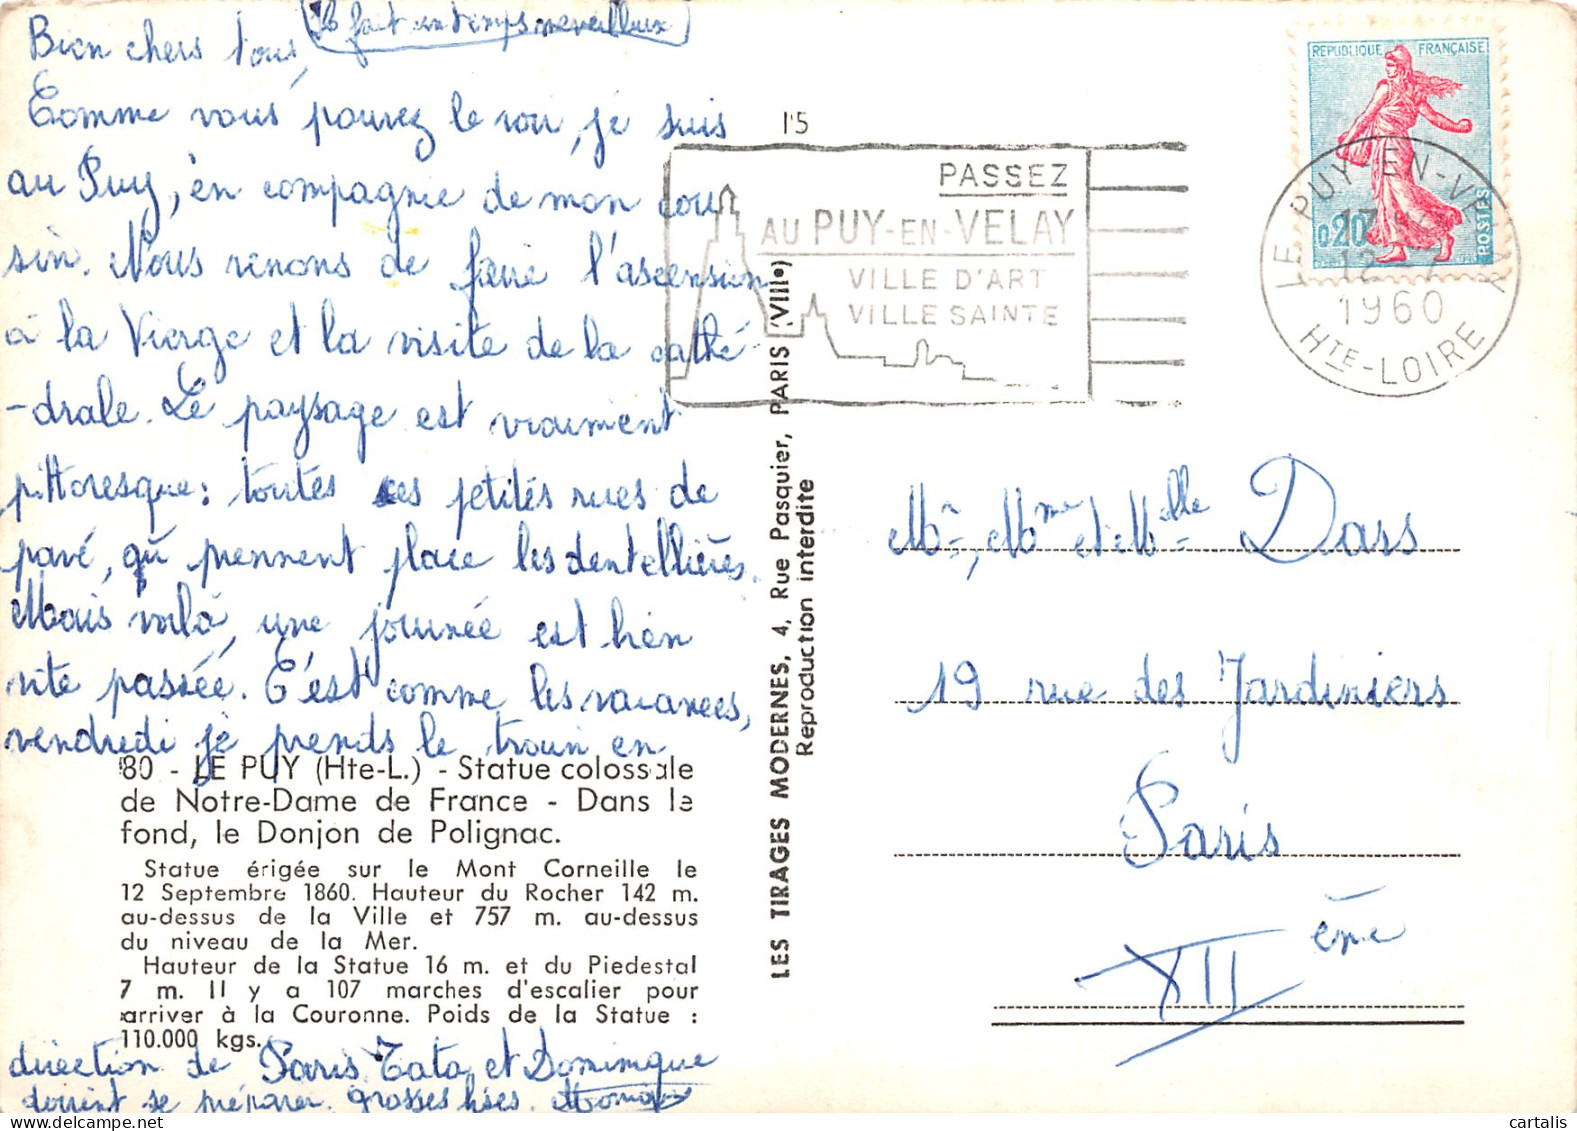 Il fait un temps merveilleux
Bien chers tous,
Comme vous pouvez le voir, je suis
au Puy, en compagnie de mon cou
sin. Nous venons de faire l'ascension
à la Vierge et la visite de la cathé-
-drale. Le paysage est vraiment
pittoresque : toutes ces petites rues de
pavé, qu prennent place les dentellières.
Mais voilà, une journée est bien
vite passée. C'est comme les vacances,
vendredi je prends le train en
80 - LE PUY (Hte-L.) - Statue colossale
de Notre-Dame de France - Dans le
fond, le Donjon de Polignac.
Statue érigée sur le Mont Corneille le
12 Septembre 1860. Hauteur du Rocher 142 m.
au-dessus de la Ville et 757 m. au-dessus
du niveau de la Mer.
Hauteur de la Statue 16 m. et du Piedestal
7 m. Il y a 107 marches d'escalier pour
arriver à la Couronne. Poids de la Statue :
110.000 kgs.
direction de Paris Tata et Dominique
doivent se préparer. Grosses bises.
LES TIRAGES MODERNES, 4, Rue Pasquier, PARIS (VIIIe)
Reproduction interdite
15
PASSEZ
AU PUY-EN-VELAY
VILLE D'ART
VILLE SAINTE
REPUBLIQUE FRANÇAISE
0,20
POSTES
LE PUY-EN-VELAY
12-7
1960
HTE-LOIRE
Mr, Mme et Mlle Dars
19 rue des Jardiniers
Paris
XII ème
cartalis